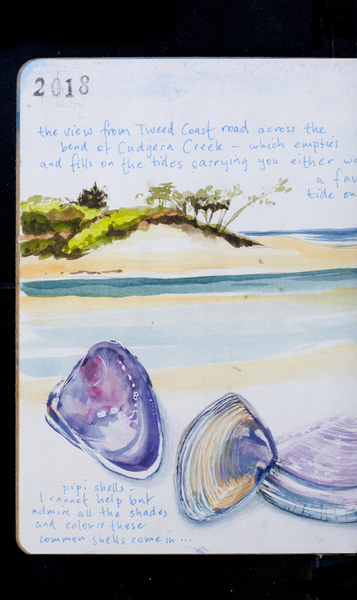 2018
the view from Tweed Coast road across the
bend of Cudgera Creek - which empties
and fills on the tides carrying you either
a
tide
pipi shells -
I cannot help but
admire all the shades
and colours these
common shells come in ...